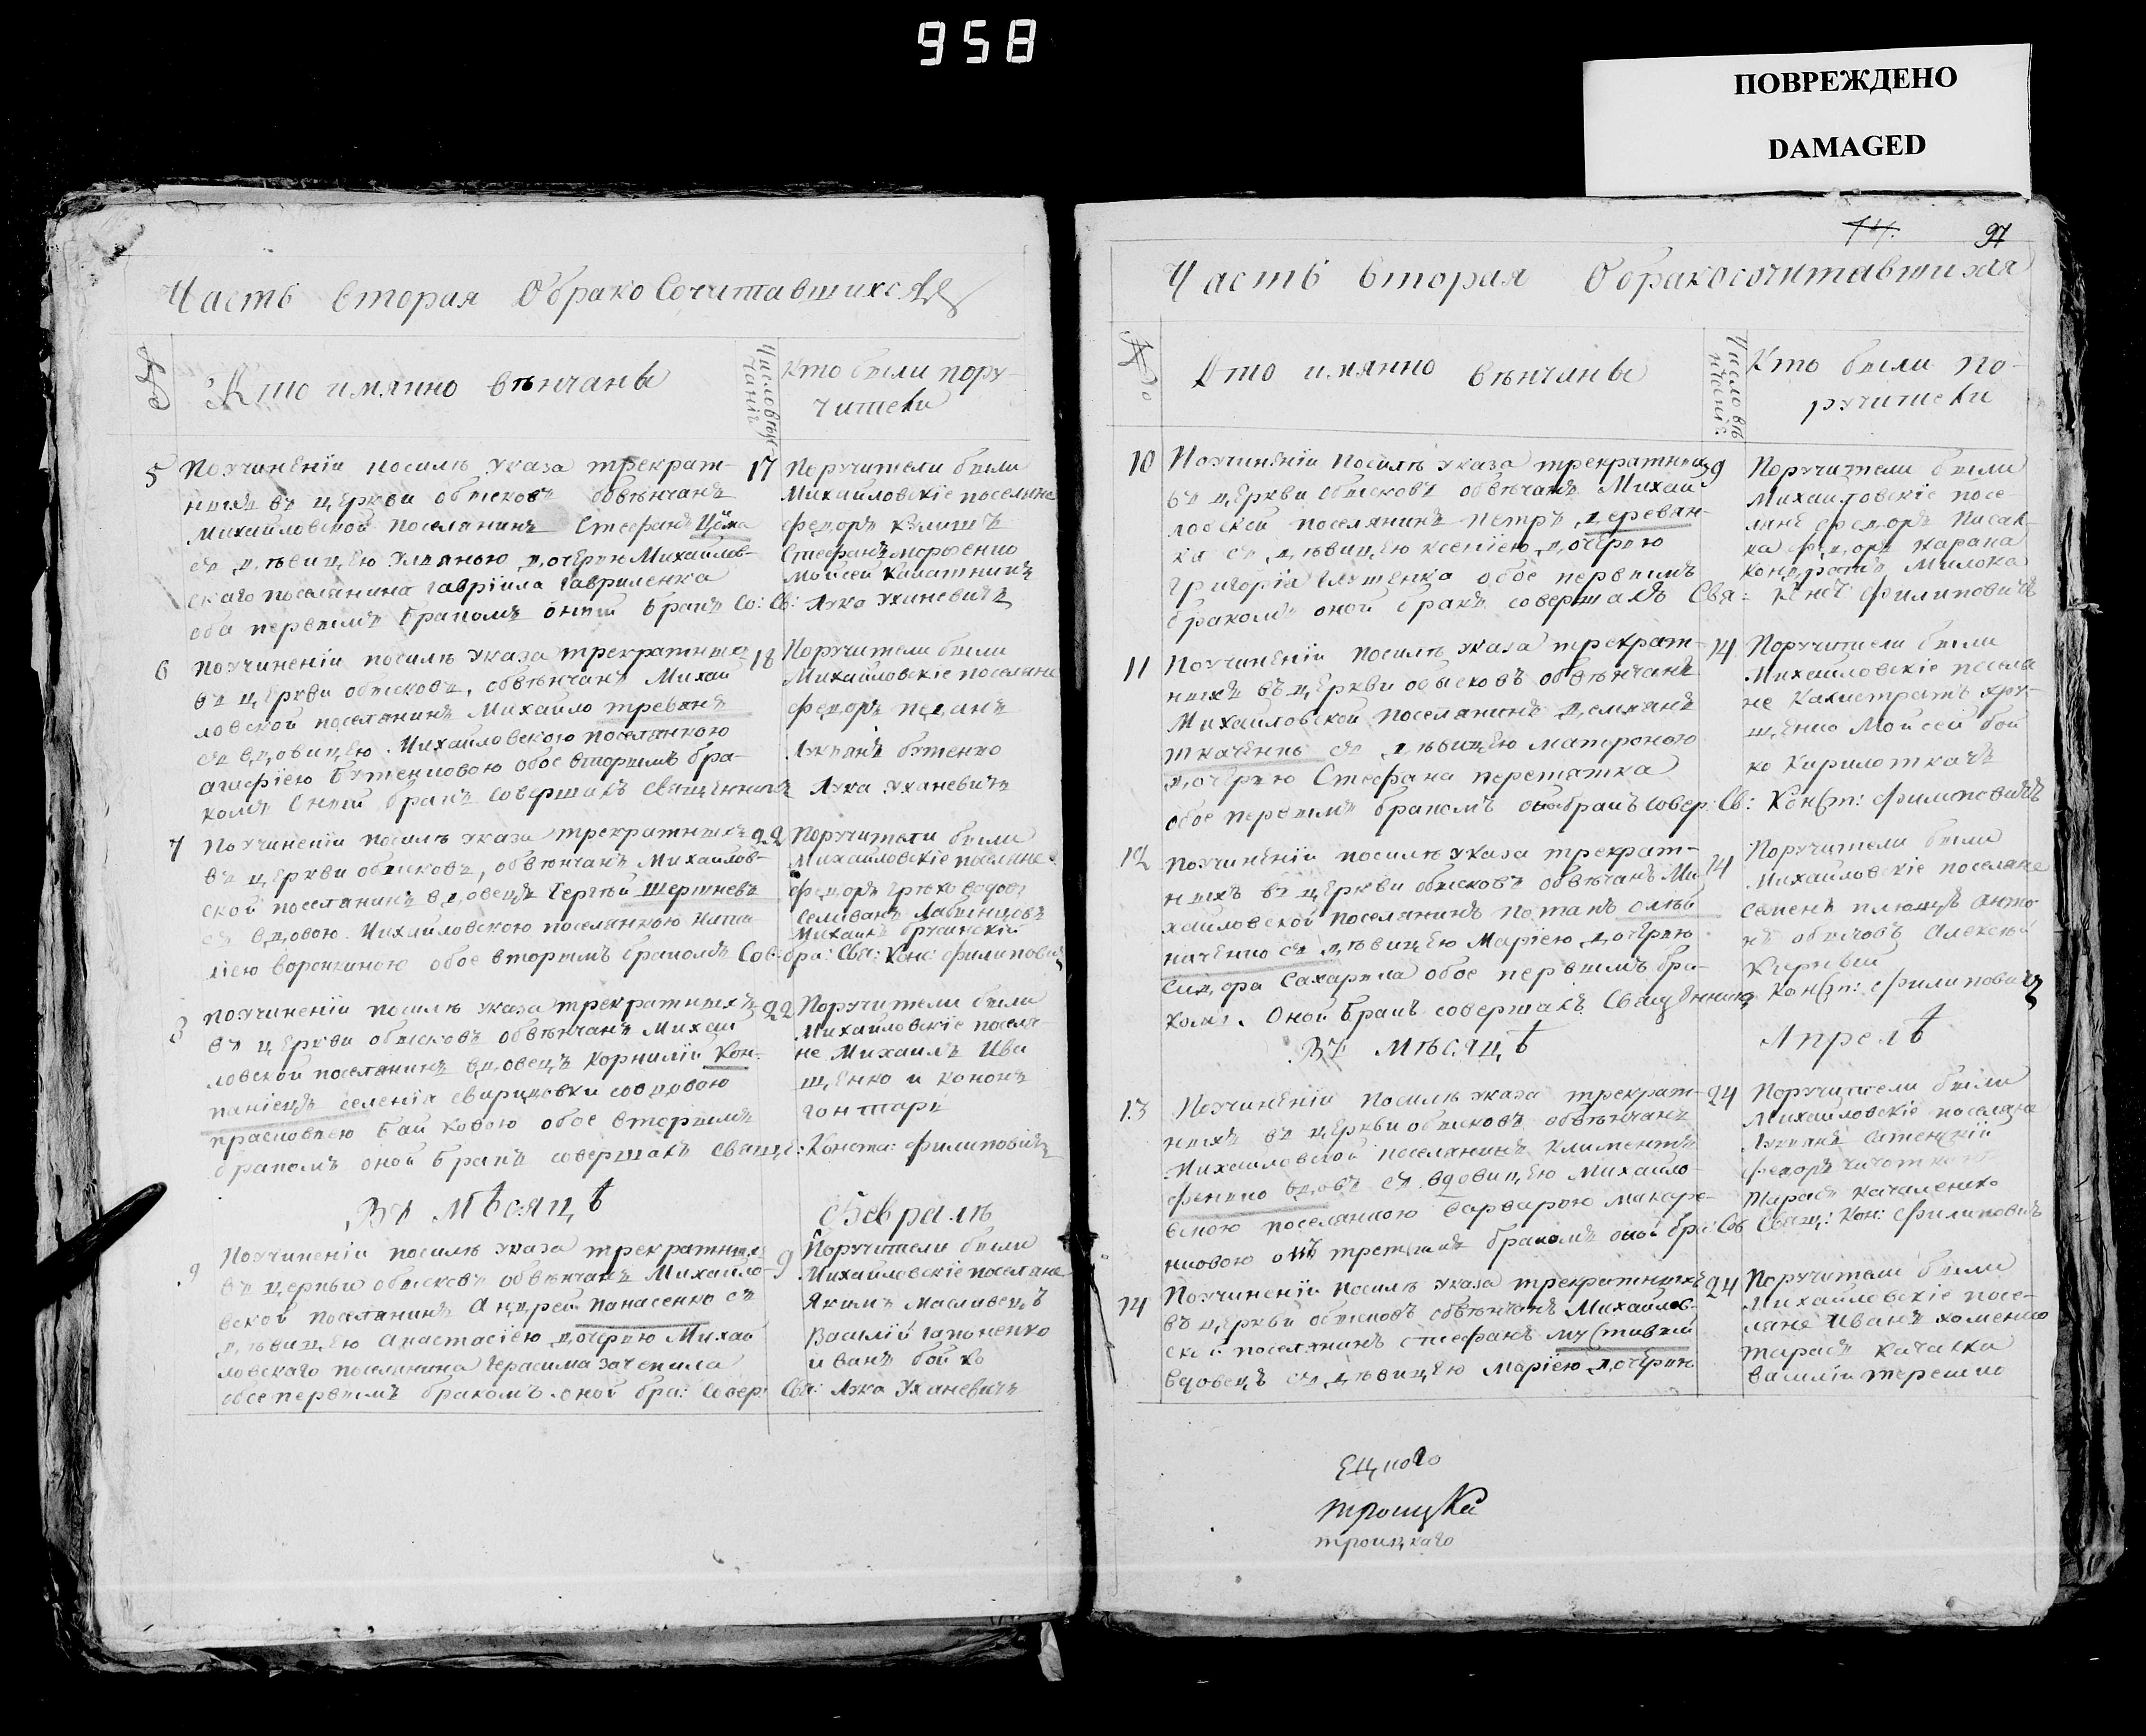 958
ПОВРЕЖДЕНО
DAMAGED
Часть вторая Обрако Сочитавшихся
Кто имянно вѣнчаны
Число вѣн
чанiй
Кто были пору-
чители
5 По учиненiи посилѣ указа трекрат-
ныхъ въ церкви обысковъ обвѣнчанъ
михайловской поселянинъ Стефанъ Цёма
съ дѣвицею Ульяною дочерью Михайлов-
скаго поселянина гаврiила гавриленка
оба первымъ бракомъ оный бракъ Со: Св: Лука Уханевичъ
17 Поручители были
Михайловскiе поселяне
федоръ
Стефанъ
Мойсей Калашникъ
6 По учиненiи посилѣ указа трекратныхъ
въ церкви обысковъ, обвѣнчанъ Михай
ловской поселянинъ Михайло треванъ
съ вдовицею Михайловскою поселянкою
агафiею Бутенковою обое вторымъ бра-
комъ Оный бракъ совершалъ священникъ Лука Уханевичъ
18 Поручители были
Михайловскiе поселяне
федоръ
Лукьянъ бутенко
7 По учиненiи посилѣ указа трекратныхъ
въ церкви обысковъ, обвѣнчанъ Михайлов-
ской поселянинъ вдовецъ Сергѣй Шершневъ
съ вдовою Михайловскою поселянкою Ната
лiею воронкиною обое вторымъ бракомъ Сов: бра: Свя: Конс: филипович
22 Поручители были
Михайловскiе поселяне
федоръ грѣховодовъ
Селиванъ Лабынцовъ
Михаилъ брусинскiй
8 по учиненiи посилѣ указа трекратныхъ
въ церкви обысковъ обвѣнчанъ Михай
ловской поселянинъ вдовецъ Корнилiй Кон-
панiецъ селенiя свиридовки со вдовою
прасковьею Байковою обое вторымъ
бракомъ оной бракъ совершалъ свяще: Конста: филиповичъ
22 Поручители были
Михайловскiе поселя
не Михаилъ Ива
щенко и кононъ
гонтарь
Въ мѣсяцѣ Февралѣ
9 По учиненiи посилѣ указа трекратныхъ
въ церкви обысковъ обвѣнчанъ Михайло-
вской поселянинъ Андрей панасенко съ
дѣвицею анастасiею дочерью Михай
ловскаго поселянина герасима зачепила
обое первымъ бракомъ оной бра: Совер: Свя: Лука Уханевичъ
9 Поручители были
Михайловскiе поселяне
Якимъ Масливецъ
Василiй гапоненко
иванъ бойко
97
Часть вторая Обракосочитавшихся
№
Кто имянно вѣнчаны
Число вѣ
нчанiй
Кто были по-
ручители
10 По учиненiи посилѣ указа трекратныхъ
въ церкви обысковъ обвѣнчанъ Михай
ловской поселянинъ петръ деревян-
ка съ дѣвицею ксенiею дочерью
григорiя глущенка обое первымъ
бракомъ оной бракъ совершалъ Свя: Конс: филиповичъ
9 Поручители были
Михайловскiе посе-
ляне федоръ Писак-
ка федоръ карака
кондратъ милока
11 По учиненiи посилѣ указа трекрат-
ныхъ въ церкви обысковъ обвѣнчанъ
Михайловской поселянинъ демьянъ
ткаченко съ дѣвицею матроною
дочерью Стефана перетятка
обое первымъ бракомъ оной бракъ совер: Св: Конст: филиповичъ
14 Поручители были
Михайловскiе поселя
не Калистратъ хру-
щенко Мойсей бой
ко Кирило ткачъ
12 по учиненiи посилѣ указа трекрат-
ныхъ въ церкви обысковъ обвѣнчанъ Ми-
хайловской поселянинъ потапъ олей
ниченко съ дѣвицею Марiею дочерью
сидора Сахарила обое первымъ бра-
комъ. Оной бракъ совершалъ Священникъ Конст: филиповичъ
14 Поручители были
Михайловскiе поселяне
Семенъ плющъ анто
нъ обысовъ Алексѣй
Кирный
Въ мѣсяцѣ Апрелѣ
13 По учиненiи посилѣ указа трекрат-
ныхъ въ церкви обысковъ обвѣнчанъ
Михайловской поселянинъ Климентъ
фенько вдовъ съ вдовицею Михайло-
вскою поселянкою варварою макаре-
нковою обѣ третьимъ бракомъ оной бра: Сов Свящ: Кон: филиповичъ
24 Поручители были
Михайловскiе поселяне
Лукьянъ
федоръ
тарасъ качаленко
14 По учиненiи посилѣ указа трекратныхъ
въ церкви обысковъ обвѣнчанъ Михайлов-
ской поселянинъ стефанъ мустивый
вдовецъ съ дѣвицею марiею дочерью
24 Поручители были
Михайловскiе посе-
ляне Иванъ хоменко
тарасъ качалка
василiй терешко
троицка
троицкаго